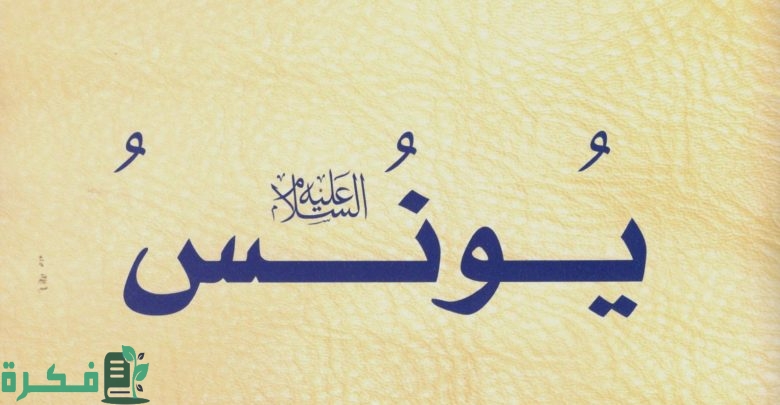 يُونُسُ
عليه السلام
فكرة